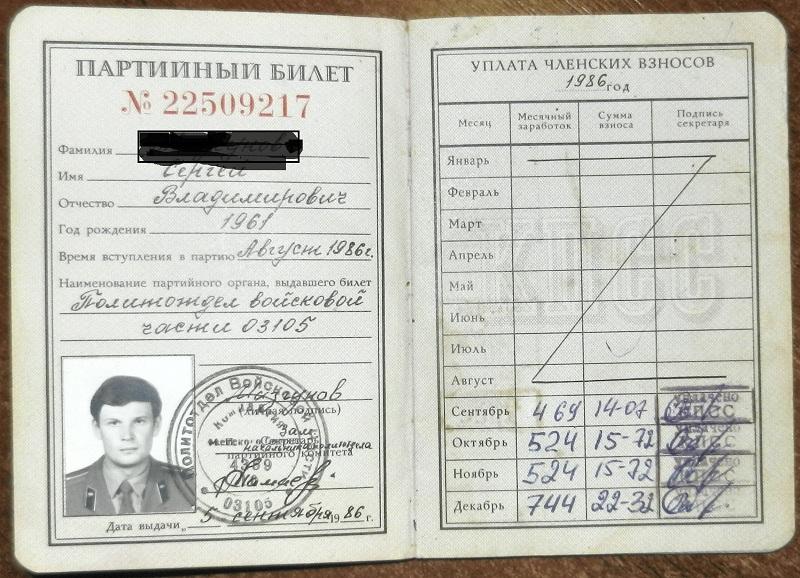 ПАРТИЙНЫЙ БИЛЕТ
№ 22509217
Фамилия
Имя Сергей
Отчество Владимирович
Год рождения 1961
Время вступления в партию Август 1986г.
Наименование партийного органа, выдавшего билет
Политотдел войсковой
части 03105
(личная подпись)
Зам.
начальника политотдела
партийного комитета
4389
03105
Дата выдачи „5 сентября 1986 г.
УПЛАТА ЧЛЕНСКИХ ВЗНОСОВ
1986 год
Месяц Месячный заработок Сумма взноса Подпись секретаря
Январь
Февраль
Март
Апрель
Май
Июнь
Июль
Август
Сентябрь 469 14-07 УПЛАЧЕНО КПСС
Октябрь 524 15-72 УПЛАЧЕНО КПСС
Ноябрь 524 15-72 УПЛАЧЕНО
Декабрь 744 22-32